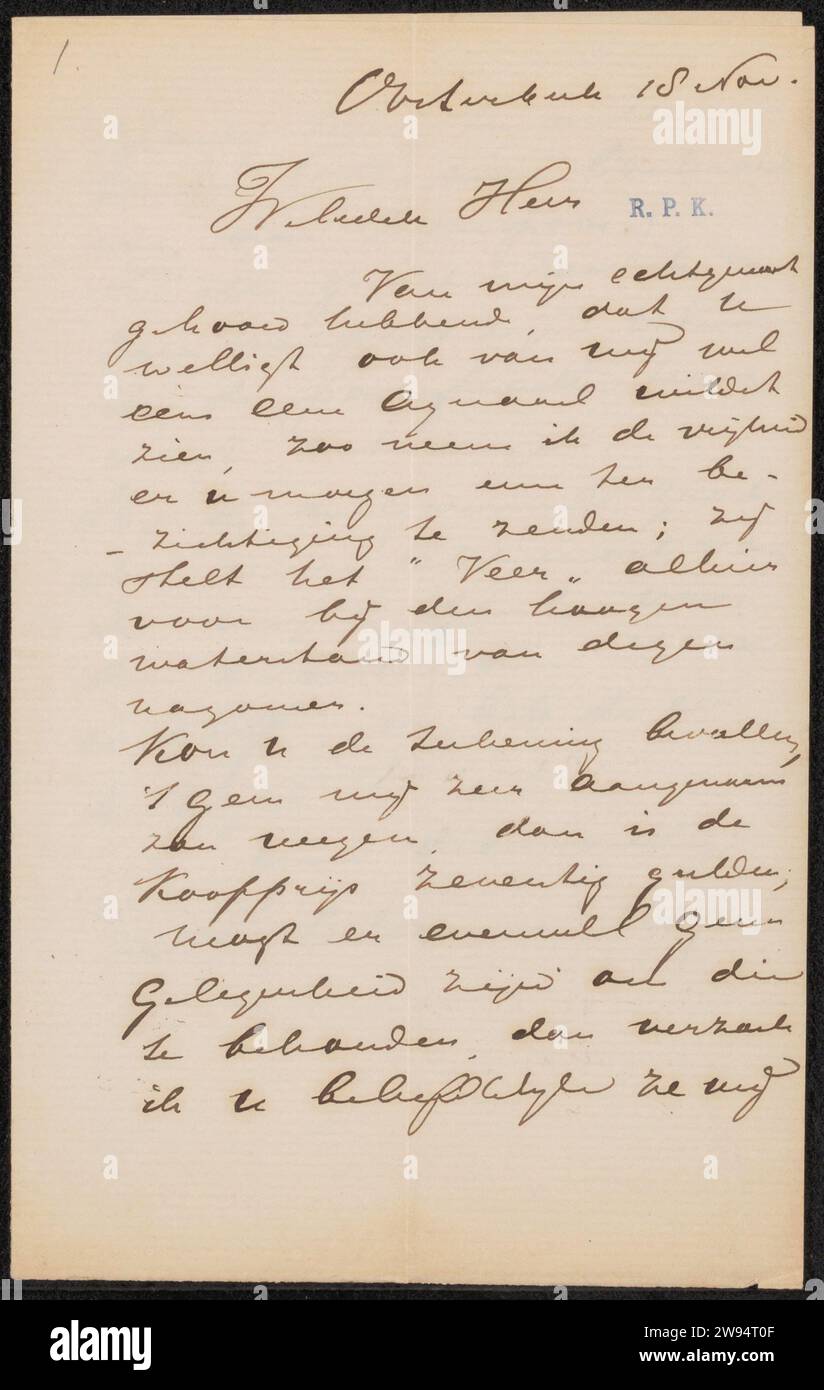 1.
Oosterbeek 18 Nov.
WelEdele Heer
R. P. K.
Van mijn echtgenoot
gehoord hebbend, dat u
welligt ook van mij wel
eens een Aquarel wildet
zien, zoo neem ik de vrijheid
er u morgen een ter be-
- zichtiging te zenden; zij
stelt het " Veer " alhier
voor bij den hoogen
waterstand van dezen
nazomer.
Kon u de teekening bevallen,
't geen mij zeer aangenaam
zou weezen, dan is de
Koopprijs zeventig gulden;
mogt er evenwel geen
Gelegenheid zijn om die
te behouden, dan verzoek
ik u beleefdelyk ze mij
alamy
Image ID: 2W94T0F
www.alamy.com